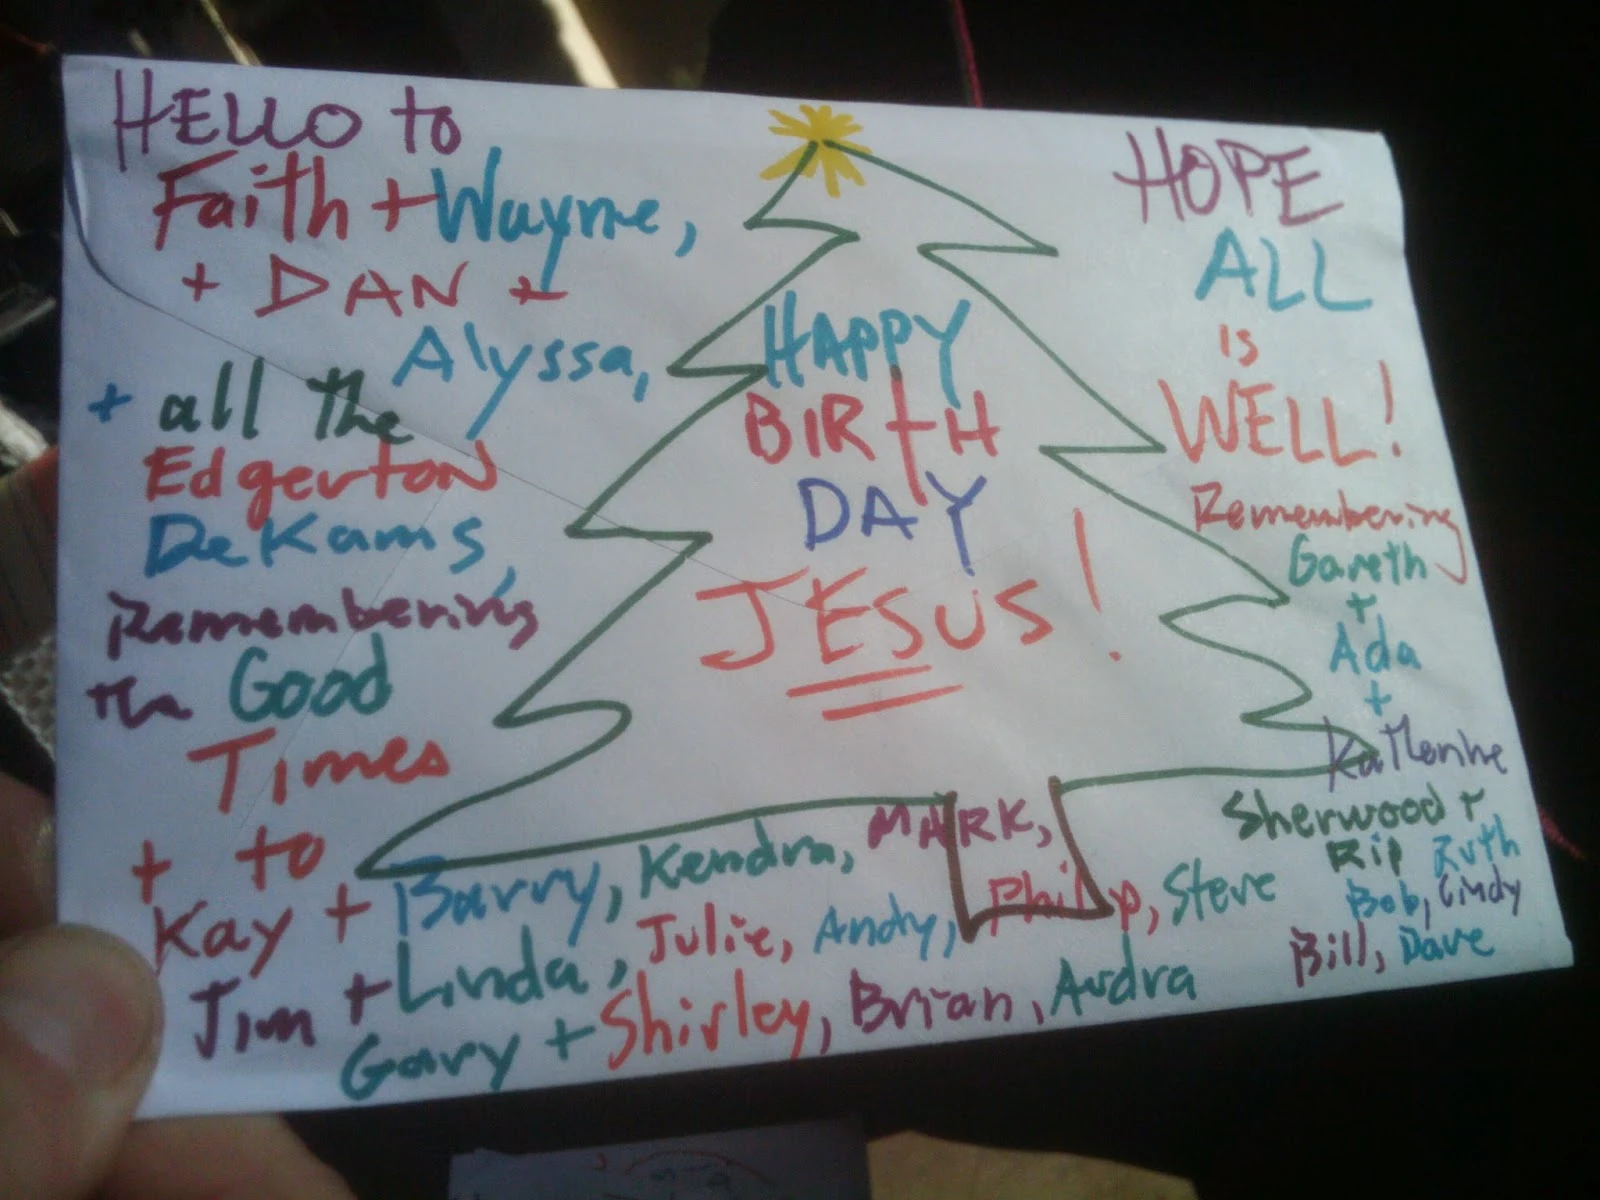 HELLO to
Faith + Wayne,
+ DAN +
Alyssa,
+ all the
Edgerton
DeKams,
Remembering
the Good
Times
+ to
Kay + Barry, Kendra, MARK,
Jim + Linda, Julie, Andy, Philip, Steve
Gary + Shirley, Brian, Audra
HAPPY
BIRTH
DAY
JESUS!
HOPE
ALL
is
WELL!
Remembering
Gareth
+
Ada
+
Katherine
Sherwood +
Rip Ruth
Bob, Cindy
Bill, Dave